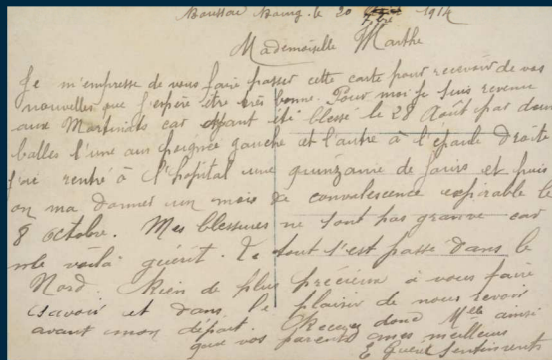 Boussac Bourg le 20 7bre 1914
Mademoiselle Marthe
Je m'empresse de vous faire passer cette carte pour recevoir de vos
nouvelles que j'espère être très bonne. Pour moi je suis revenu
aux Martinats car ayant été blessé le 28 Août par deux
balles l'une au poignée gauche et l'autre à l'épaule Droite
j'ai rentré à l'hopital une quinzaine de jours et puis
on ma donner un mois de convalescence expirable le
8 octobre. Mes blessures ne sont pas grave car
me voilà guérit. Le tout s'est passé Dans le
Nord. Rien de plus précieux à vous faire
savoir et dans le plaisir de nous revoir
avant mon départ. Recevez donc Melle ainsi
que vos parents mes meilleurs
Sentiments